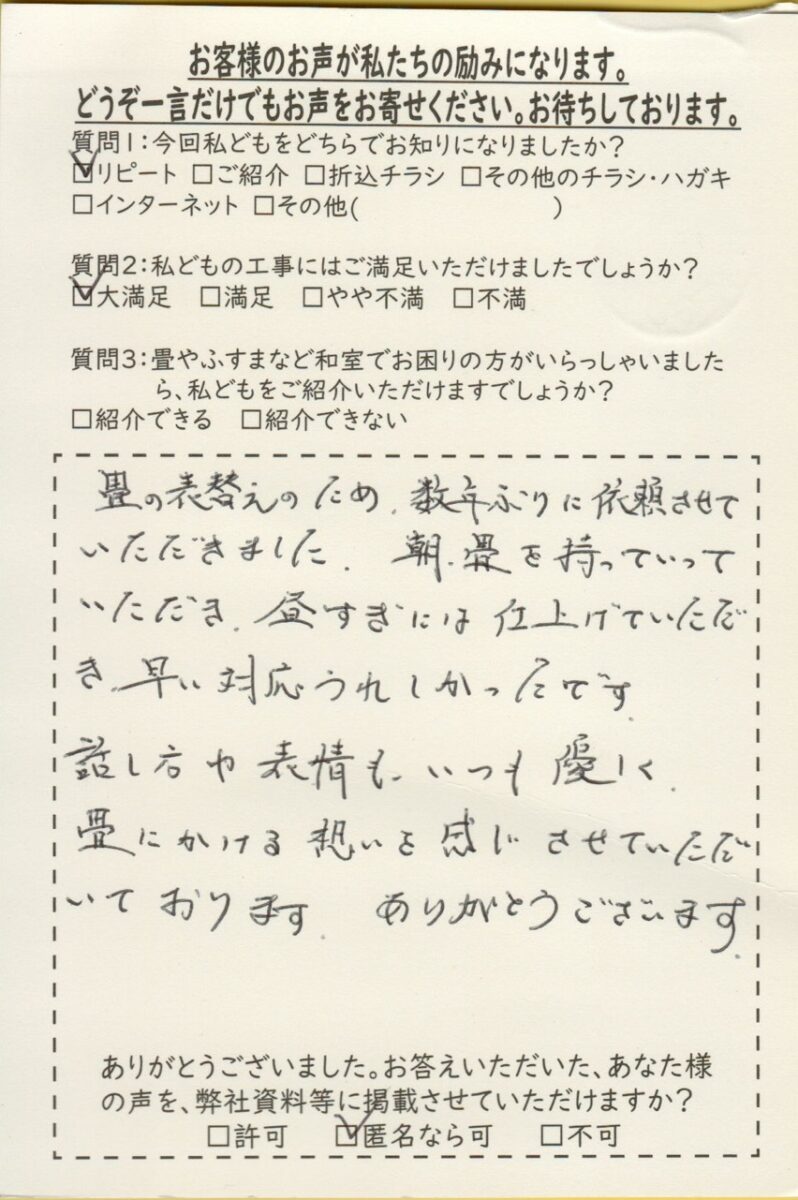 お客様のお声が私たちの励みになります。
どうぞ一言だけでもお声をお寄せください。お待ちしております。
質問1：今回私どもをどちらでお知りになりましたか？
☑リピート □ご紹介 □折込チラシ □その他のチラシ・ハガキ
□インターネット □その他(　　　　　　　　)
質問2：私どもの工事にはご満足いただけましたでしょうか？
☑大満足 □満足 □やや不満 □不満
質問3：畳やふすまなど和室でお困りの方がいらっしゃいました
ら、私どもをご紹介いただけますでしょうか？
□紹介できる □紹介できない
畳の表替えのため、数年ぶりに依頼させて
いただきました。朝、畳を持っていって
いただき、昼すぎには仕上げていただ
き、早い対応うれしかったです。
話し方や表情も、いつも優しく、
畳にかける想いを感じさせていただ
いております。ありがとうございます。
ありがとうございました。お答えいただいた、あなた様
の声を、弊社資料等に掲載させていただけますか？
□許可 ☑匿名なら可 □不可